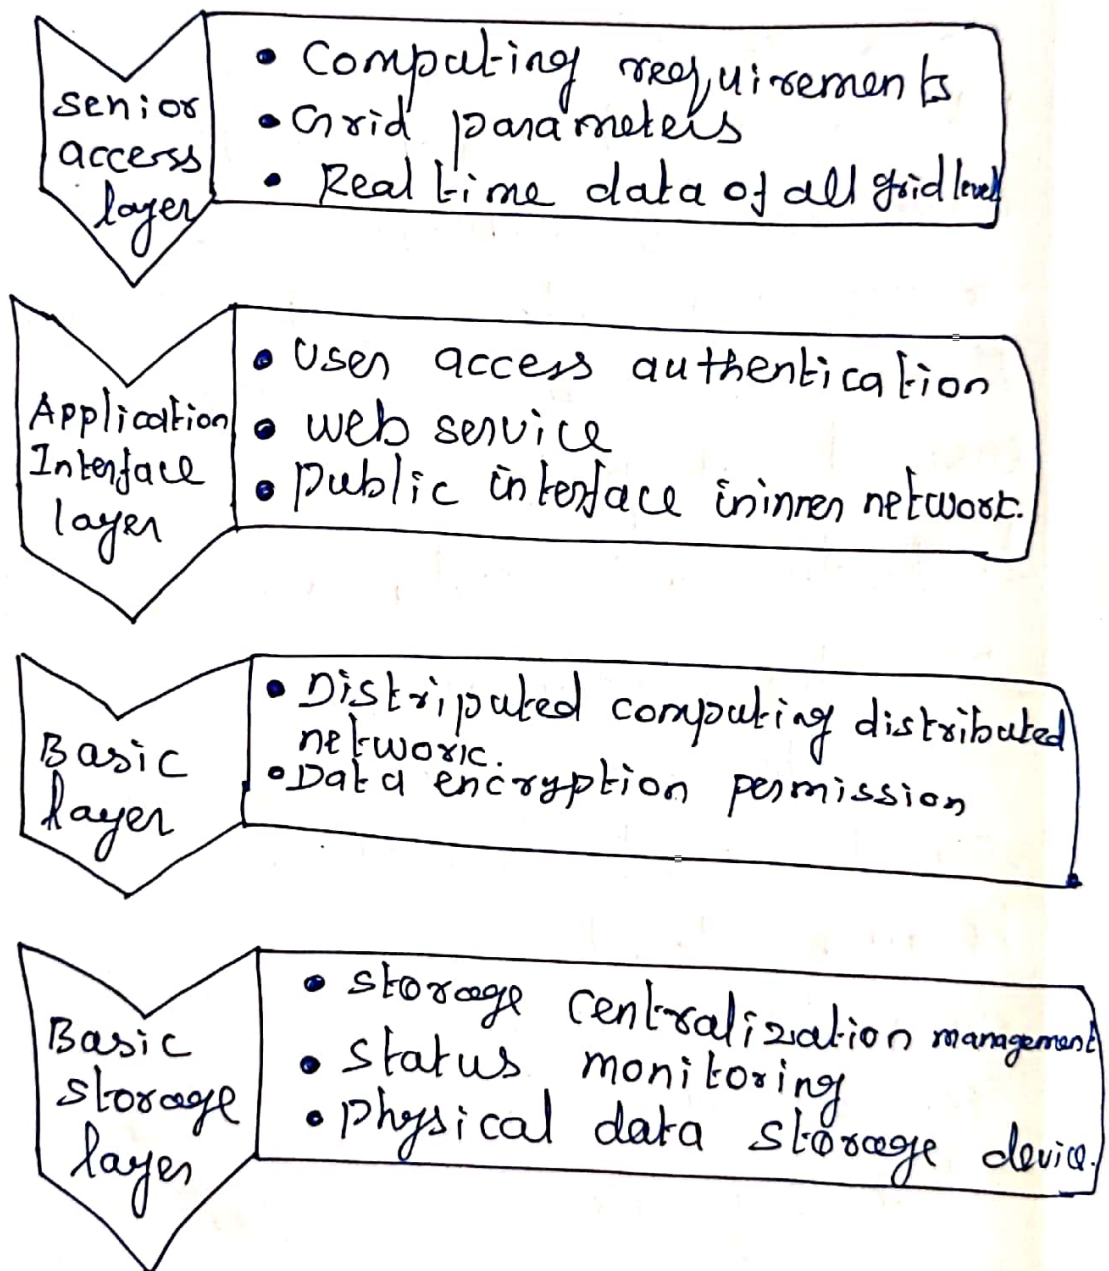 senior
access
layer
• Computing requirements
• Grid parameters
• Real time data of all grid level
Application
Interface
layer
• User access authentication
• web service
• public interface ininner network.
Basic
layer
• Distriputed computing distributed
network.
• Data encryption permission
Basic
storage
layer
• storage centralization management
• status monitoring
• physical data storage device.